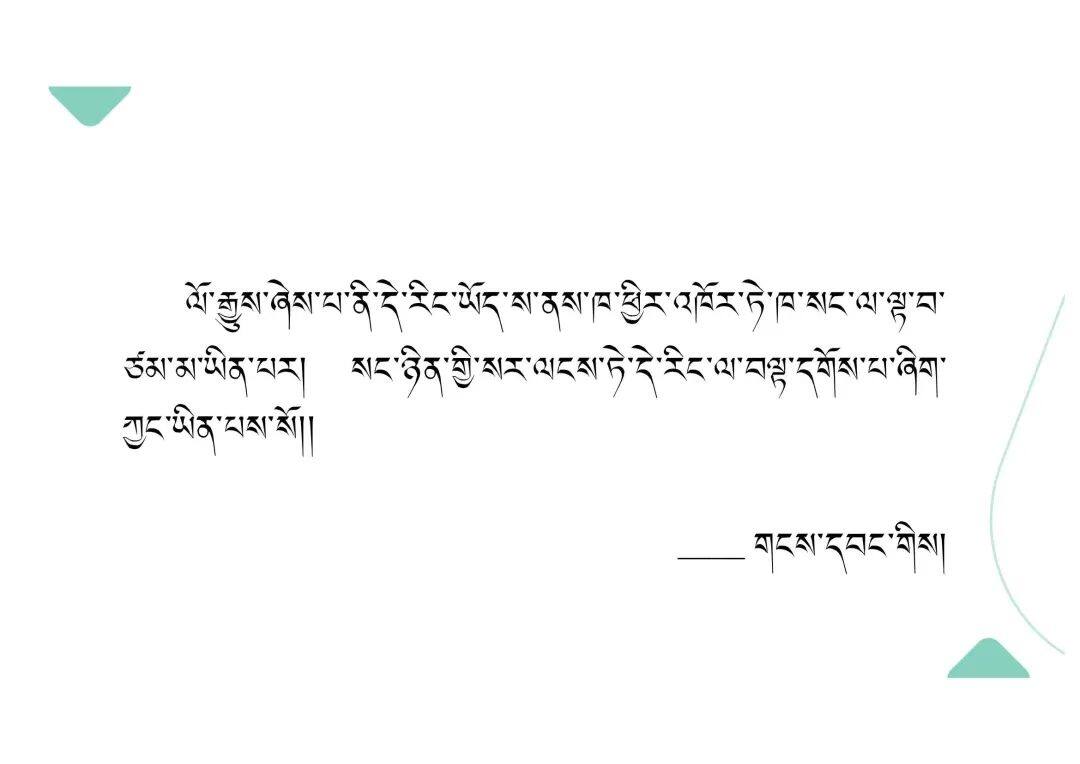 ལོ་རྒྱུས་ཞེས་པ་ནི་དེ་རིང་ཡོད་ས་ནས་ཁ་ཕྱིར་འཁོར་ཏེ་ཁ་སང་ལ་ལྟ་བ་
ཙམ་མ་ཡིན་པར། སང་ཉིན་གྱི་སར་ལངས་ཏེ་དེ་རིང་ལ་བལྟ་དགོས་པ་ཞིག་
ཀྱང་ཡིན་པས་སོ།།
____ གངས་དབང་གིས།